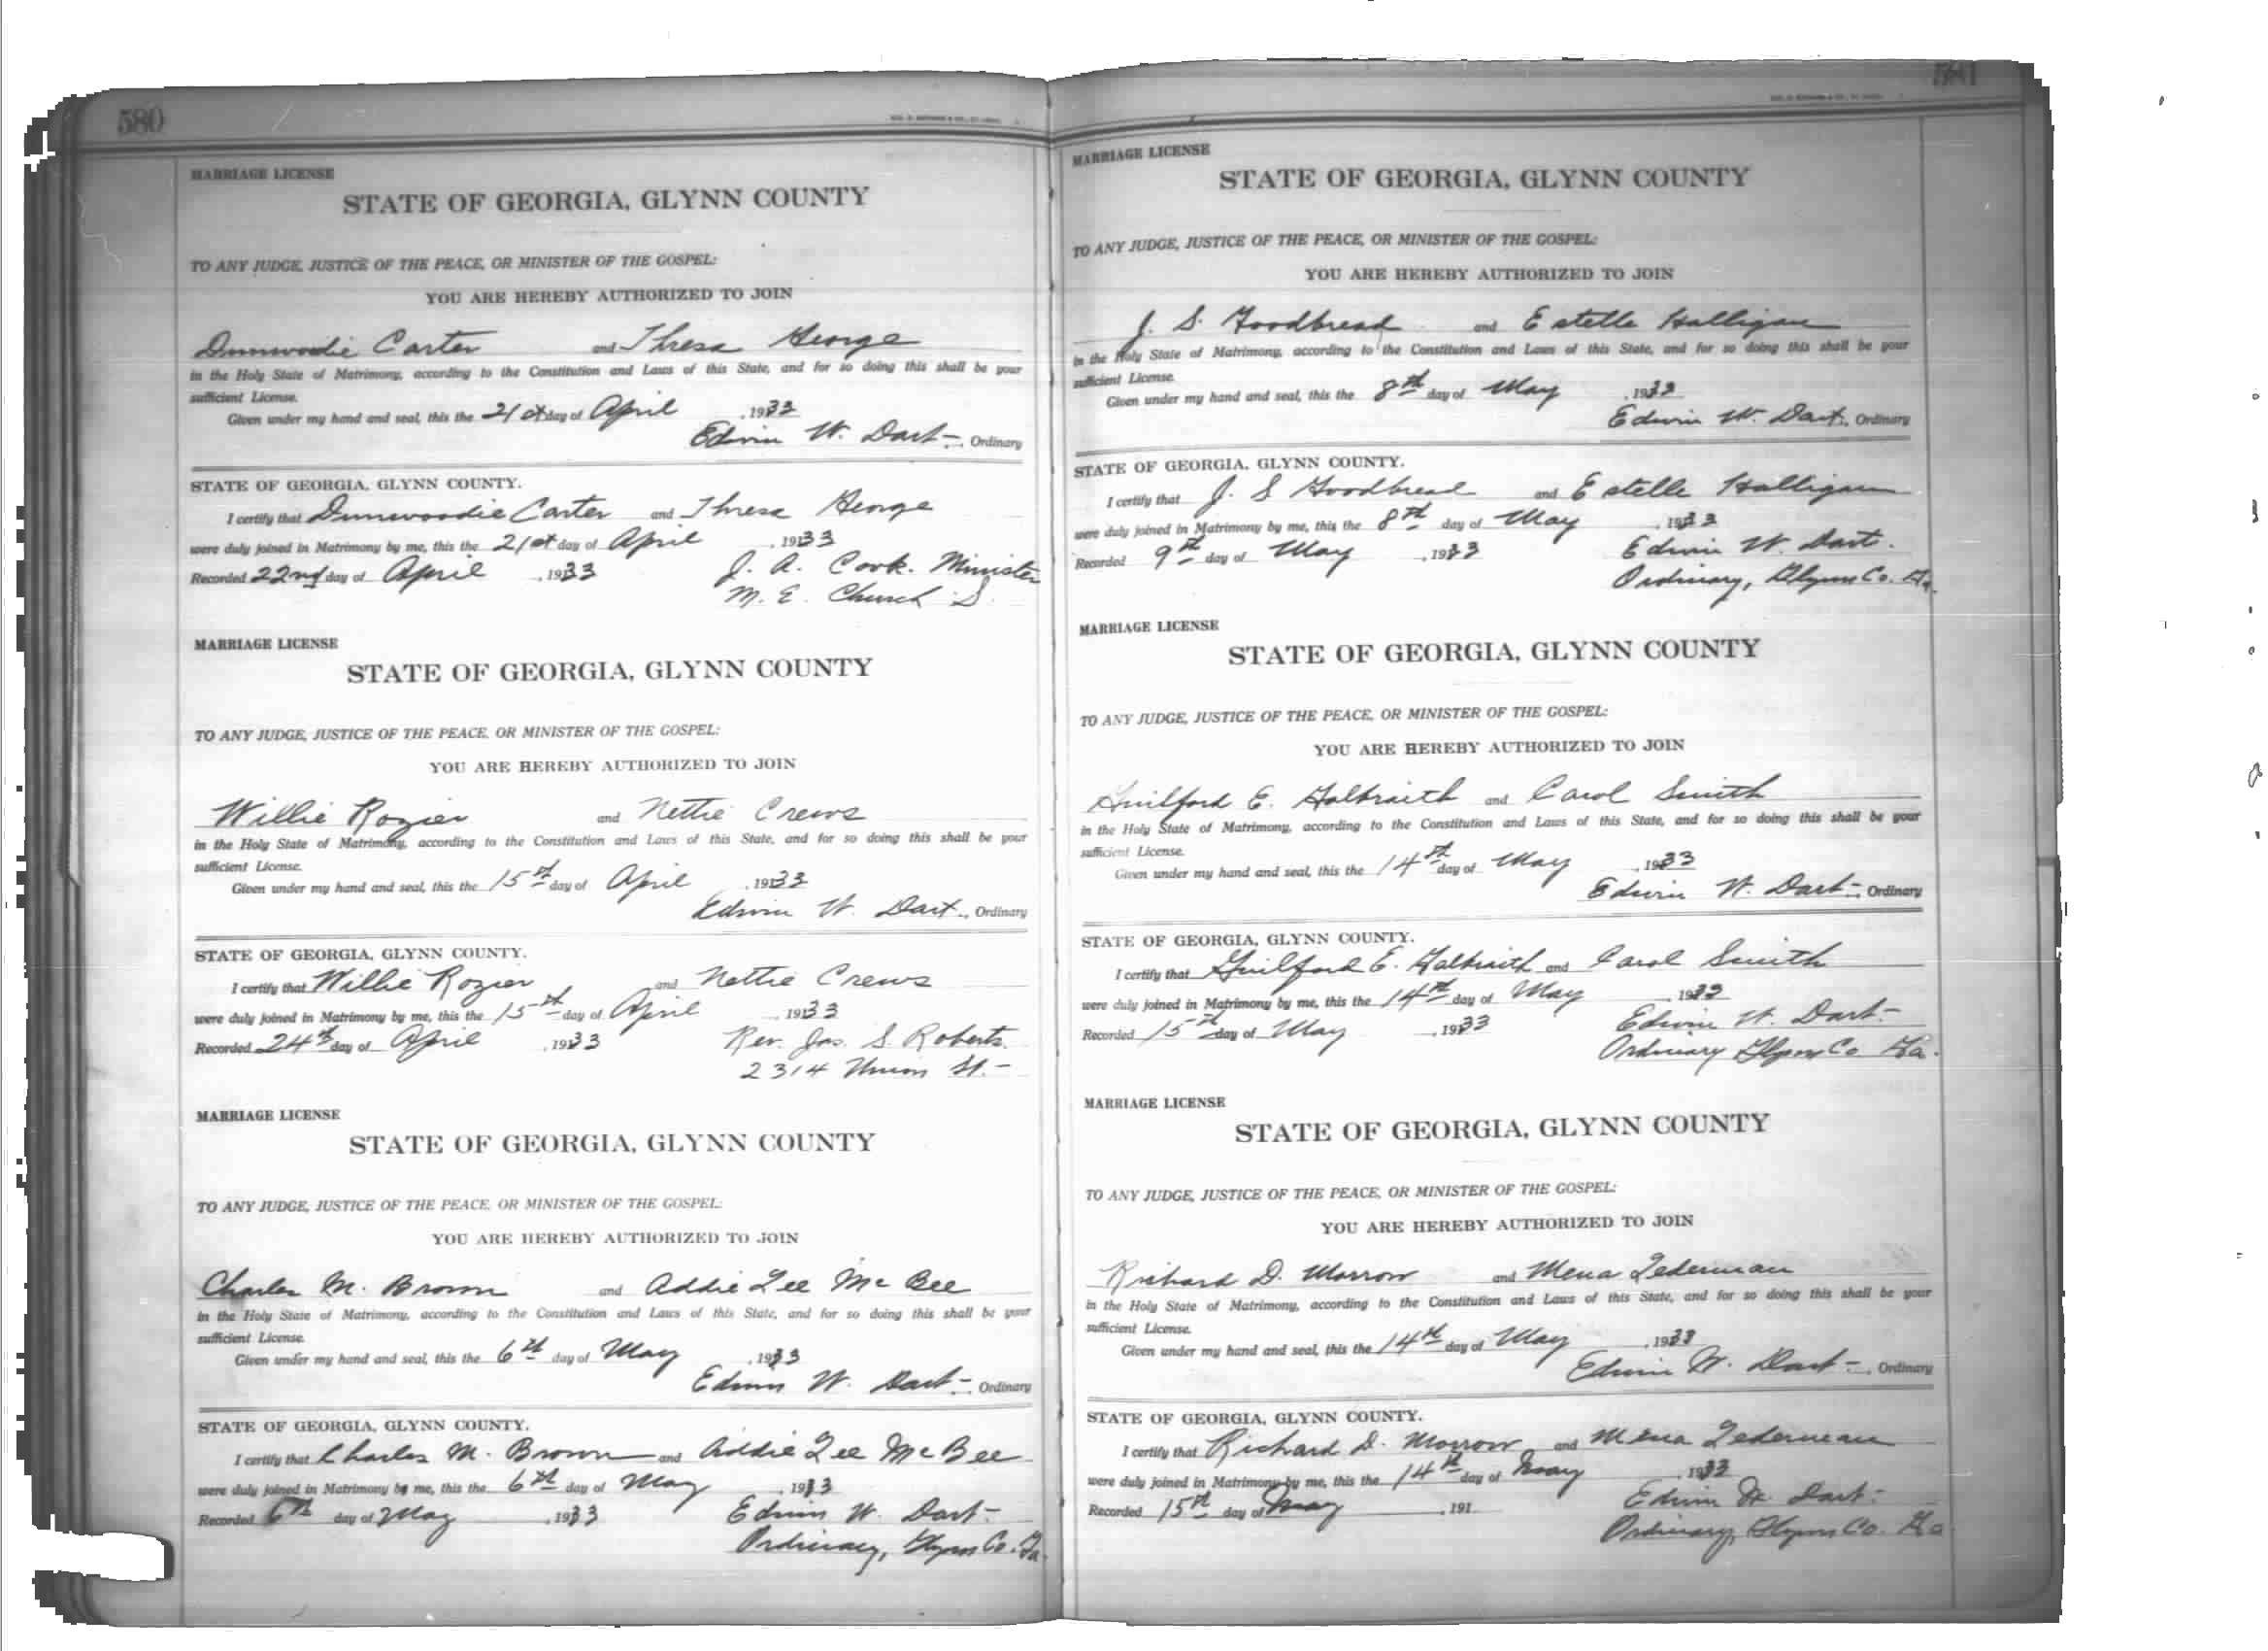 580
MARRIAGE LICENSE
STATE OF GEORGIA, GLYNN COUNTY
TO ANY JUDGE, JUSTICE OF THE PEACE, OR MINISTER OF THE GOSPEL:
YOU ARE HEREBY AUTHORIZED TO JOIN
Dunwoodie Carter and Thresa George
in the Holy State of Matrimony, according to the Constitution and Laws of this State, and for so doing this shall be your
sufficient License.
Given under my hand and seal, this the 21st day of April, 1933
Edwin W. Dart-, Ordinary
STATE OF GEORGIA, GLYNN COUNTY.
I certify that Dunwoodie Carter and Thresa George
were duly joined in Matrimony by me, this the 21st day of April, 1933
Recorded 22nd day of April, 1933 J. A. Cook. Minister
M. E. Church S.
MARRIAGE LICENSE
STATE OF GEORGIA, GLYNN COUNTY
TO ANY JUDGE, JUSTICE OF THE PEACE, OR MINISTER OF THE GOSPEL:
YOU ARE HEREBY AUTHORIZED TO JOIN
Willie Rozier and Nettie Crews
in the Holy State of Matrimony, according to the Constitution and Laws of this State, and for so doing this shall be your
sufficient License.
Given under my hand and seal, this the 15th day of April, 1933
Edwin W. Dart-, Ordinary
STATE OF GEORGIA, GLYNN COUNTY.
I certify that Willie Rozier and Nettie Crews
were duly joined in Matrimony by me, this the 15th day of April, 1933
Recorded 24th day of April, 1933 Rev. Jas. S. Roberts.
2314 Union St.-
MARRIAGE LICENSE
STATE OF GEORGIA, GLYNN COUNTY
TO ANY JUDGE, JUSTICE OF THE PEACE, OR MINISTER OF THE GOSPEL:
YOU ARE HEREBY AUTHORIZED TO JOIN
Charles M. Brown and Addie Lee McBee
in the Holy State of Matrimony, according to the Constitution and Laws of this State, and for so doing this shall be your
sufficient License.
Given under my hand and seal, this the 6th day of May, 1933
Edwin W. Dart-, Ordinary
STATE OF GEORGIA, GLYNN COUNTY.
I certify that Charles M. Brown and Addie Lee McBee
were duly joined in Matrimony by me, this the 6th day of May, 1933
Recorded 6th day of May, 1933 Edwin W. Dart-
Ordinary, Glynn Co. Ga.
581
MARRIAGE LICENSE
STATE OF GEORGIA, GLYNN COUNTY
TO ANY JUDGE, JUSTICE OF THE PEACE, OR MINISTER OF THE GOSPEL:
YOU ARE HEREBY AUTHORIZED TO JOIN
J. S. Goodbread and Estelle Halligan
in the Holy State of Matrimony, according to the Constitution and Laws of this State, and for so doing this shall be your
sufficient License.
Given under my hand and seal, this the 8th day of May, 1933
Edwin W. Dart-, Ordinary
STATE OF GEORGIA, GLYNN COUNTY.
I certify that J. S Goodbread and Estelle Halligan
were duly joined in Matrimony by me, this the 8th day of May, 1933
Recorded 9th day of May, 1933 Edwin W. Dart.
Ordinary, Glynn Co. Ga.
MARRIAGE LICENSE
STATE OF GEORGIA, GLYNN COUNTY
TO ANY JUDGE, JUSTICE OF THE PEACE, OR MINISTER OF THE GOSPEL:
YOU ARE HEREBY AUTHORIZED TO JOIN
Guilford E. Galbraith and Carol Smith
in the Holy State of Matrimony, according to the Constitution and Laws of this State, and for so doing this shall be your
sufficient License.
Given under my hand and seal, this the 14th day of May, 1933
Edwin W. Dart-, Ordinary
STATE OF GEORGIA, GLYNN COUNTY.
I certify that Guilford E. Galbraith and Carol Smith
were duly joined in Matrimony by me, this the 14th day of May, 1933
Recorded 15th day of May, 1933 Edwin W. Dart-
Ordinary Glynn Co Ga.
MARRIAGE LICENSE
STATE OF GEORGIA, GLYNN COUNTY
TO ANY JUDGE, JUSTICE OF THE PEACE, OR MINISTER OF THE GOSPEL:
YOU ARE HEREBY AUTHORIZED TO JOIN
Richard D. Morrow and Mena Lederman
in the Holy State of Matrimony, according to the Constitution and Laws of this State, and for so doing this shall be your
sufficient License.
Given under my hand and seal, this the 14th day of May, 1933
Edwin W. Dart-, Ordinary
STATE OF GEORGIA, GLYNN COUNTY.
I certify that Richard D. Morrow and Mena Lederman
were duly joined in Matrimony by me, this the 14th day of May, 1933
Recorded 15th day of May, 191 Edwin W. Dart-
Ordinary, Glynn Co. Ga